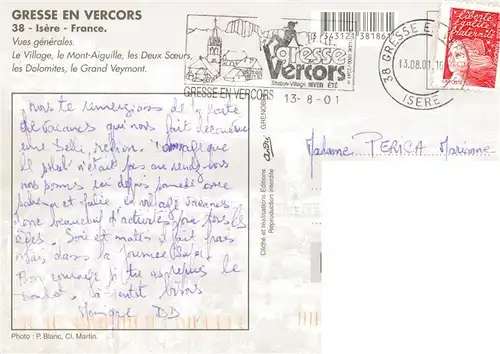 GRESSE EN VERCORS
38 - Isère - France.
Vues générales.
Le Village, le Mont-Aiguille, les Deux Sœurs,
les Dolomites, le Grand Veymont.
3343121381861
Gresse en
Vercors
Station-Village HIVER ÉTÉ
GRESSE EN VERCORS
13-8-01
38 GRESSE E
13.08.01
ISERE
Liberté
égalité
fraternité
LA POSTE
Nous te remercions de la carte
de vacances qui nous fait découvrir
une belle région
le soleil n'était pas au rendez vous
nous sommes ici depuis samedi avec
et Julie en village vacances
donc beaucoup d'activités pour tous les
âges. Soir et matin il fait frais
mais dans la journée
Bon courage si tu as repris le
boulot, à bientôt bises
DD
Madame PERICA Marianne
GRENOBLE
André
Cliché et réalisations Editions
Reproduction interdite
Photo : P. Blanc, Cl. Martin.